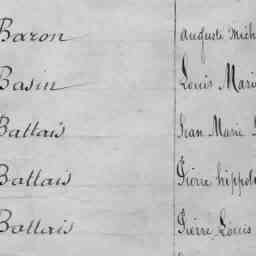 Baron Auguste Mich
Basin Louis Mari
Battais Jean Marie
Battais Pierre hippol
Battais Pierre Louis